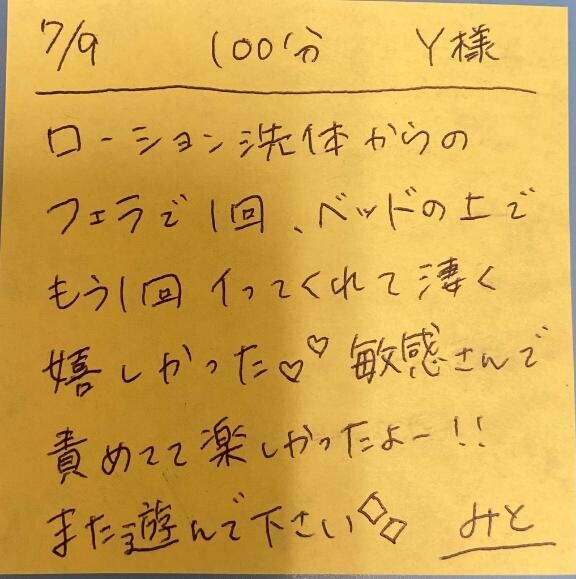 7/9 100分 Y様
ローション洗体からの
フェラで1回、ベッドの上で
もう1回イってくれて凄く
嬉しかった♡♡ 敏感さんで
責めてて楽しかったよー!!
また遊んで下さい◇◇ みと